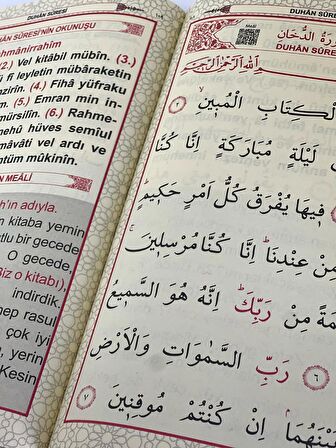 DUHAN SÛRESİ
HÂN SÛRESİ'NİN OKUNUŞU
hmânirrahîm
2.) Vel kitâbil mübîn. (3.)
fî leyletin mübâraketin
zirîn. (4.) Fîhâ yüfraku
(5.) Emran min in-
mürsilîn. (6.) Rahme-
nehû hüves semîul
mâvâti vel ardı ve
ntüm mûkinîn.
N MEALİ
h'ın adıyla.
n kitaba yemin
tlu bir gecede
O gecede,
Biz o kitabı),
indirdik.
nep rasul
çok iyi
, yerin
Kesin
DUHÂN SÛRE
MEALİ
رَةُ الدُّخَانِ
DUHÂN SÛRE
الْكِتَابِ الْمُبٖينِ ٢
لَيْلَةٍ مُبَارَكَةٍ اِنَّا كُنَّا
فٖيهَا يُفْرَقُ كُلُّ اَمْرٍ حَكٖيمٍ
مِنْ عِنْدِنَا اِنَّا كُنَّا مُرْسِلٖينَ
مِنْ رَبِّكَ اِنَّهُ هُوَ السَّمٖيعُ
٦ رَبِّ السَّمٰوَاتِ وَالْاَرْضِ
اِنْ كُنْتُمْ مُوقِنٖينَ ٧